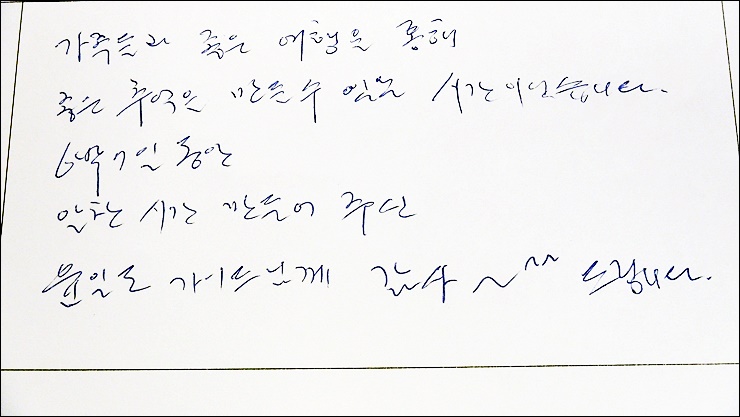 가족들과 좋은 여행을 통해
좋은 추억을 만든수 있는 시간이었습니다.
6박7일 동안
알찬 시간 만들어 주신
윤일도 가이드님께 감사 ~ ^^ 드립니다.